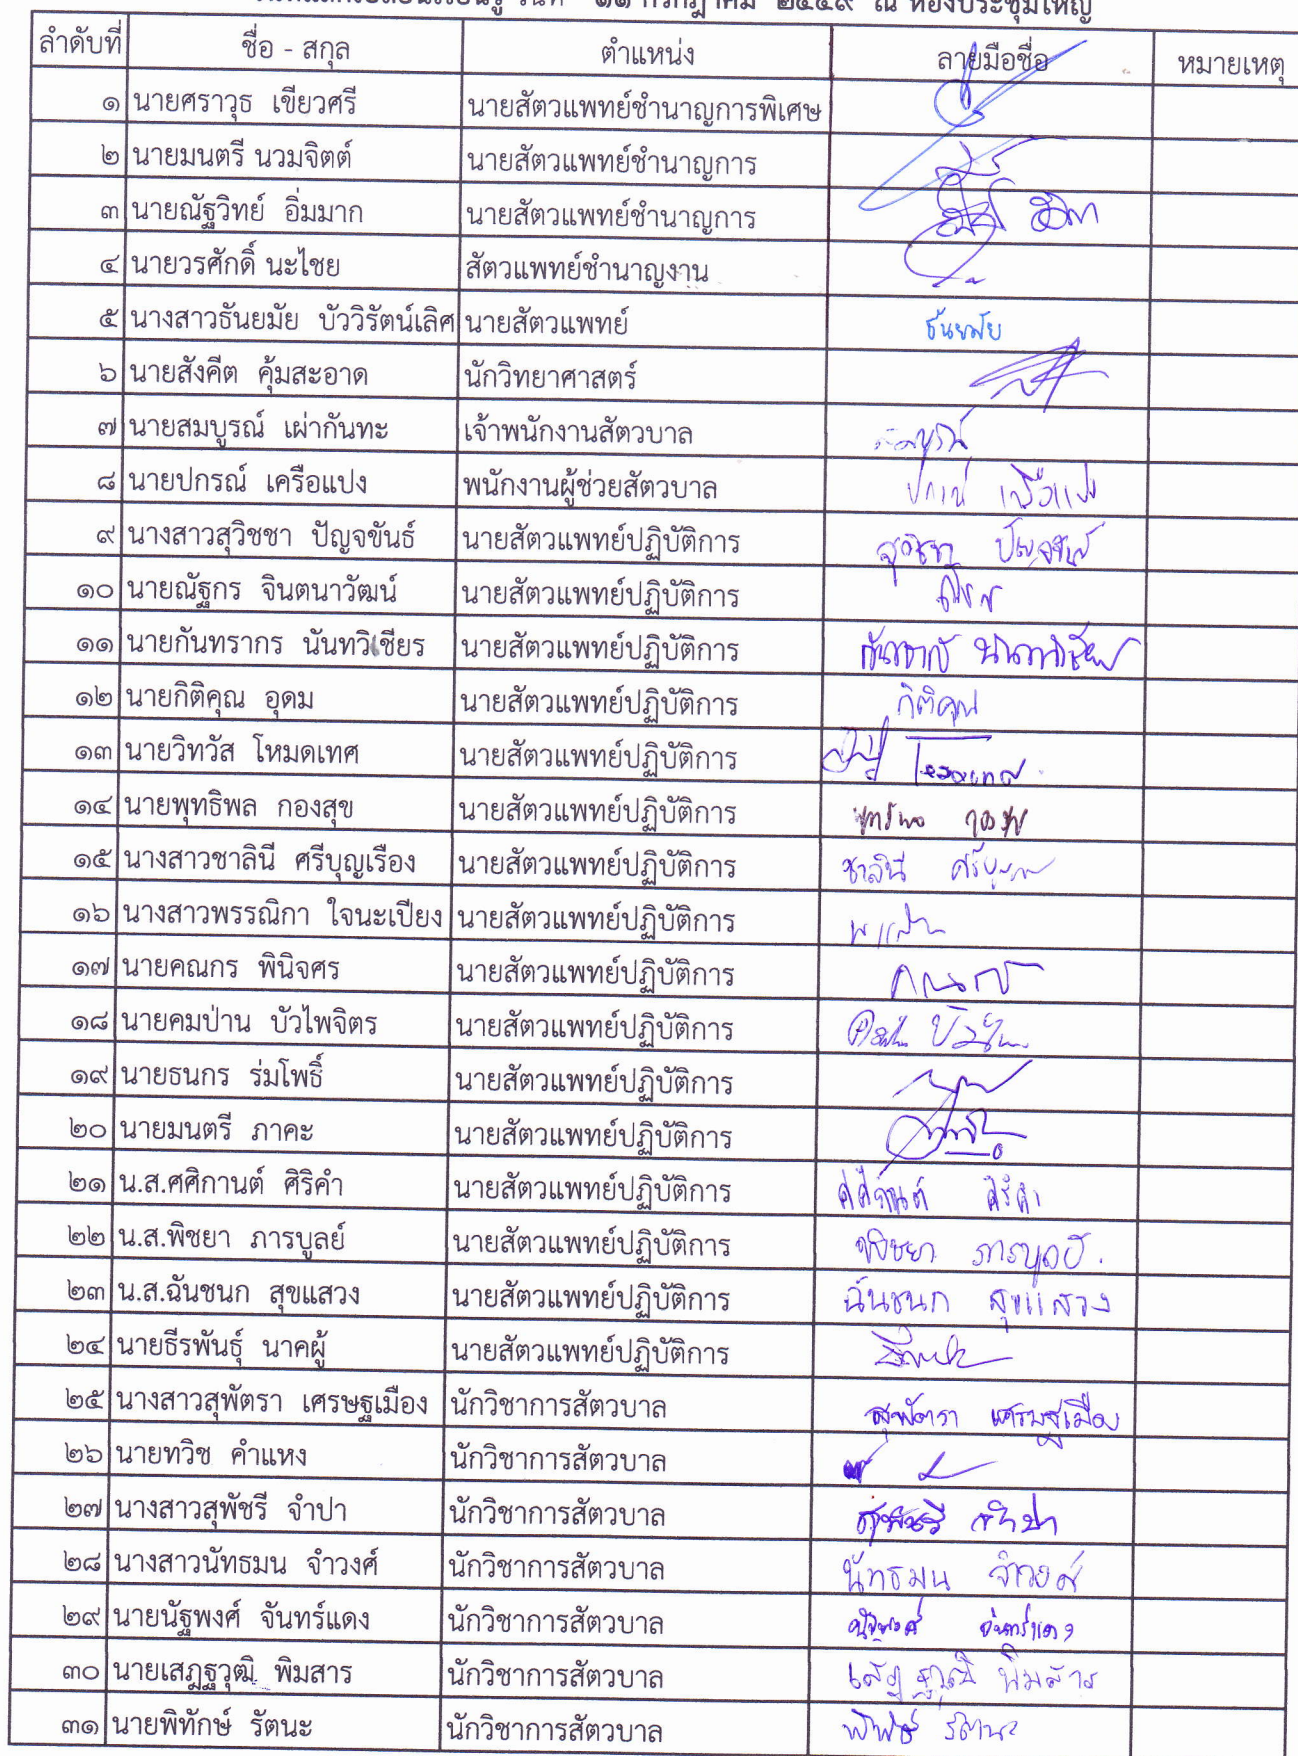 วันที่ ๑๑ กรกฎาคม ๒๕๕๙ ณ ห้องประชุมใหญ่
ลำดับที่ ชื่อ - สกุล ตำแหน่ง ลายมือชื่อ หมายเหตุ
๑ นายศราวุธ เขียวศรี นายสัตวแพทย์ชำนาญการพิเศษ
๒ นายมนตรี นวมจิตต์ นายสัตวแพทย์ชำนาญการ
๓ นายณัฐวิทย์ อิ่มมาก นายสัตวแพทย์ชำนาญการ
๔ นายวรศักดิ์ นะไชย สัตวแพทย์ชำนาญงาน
๕ นางสาวธันยมัย บัววิรัตน์เลิศ นายสัตวแพทย์ ธันยมัย
๖ นายสังคีต คุ้มสะอาด นักวิทยาศาสตร์
๗ นายสมบูรณ์ เผ่ากันทะ เจ้าพนักงานสัตวบาล สมบูรณ์
๘ นายปกรณ์ เครือแปง พนักงานผู้ช่วยสัตวบาล ปกรณ์ เครือแปง
๙ นางสาวสุวิชชา ปัญจขันธ์ นายสัตวแพทย์ปฏิบัติการ สุวิชชา ปัญจขันธ์
๑๐ นายณัฐกร จินตนาวัฒน์ นายสัตวแพทย์ปฏิบัติการ
๑๑ นายกันทรากร นันทวิเชียร นายสัตวแพทย์ปฏิบัติการ กันทรากร นันทวิเชียร
๑๒ นายกิติคุณ อุดม นายสัตวแพทย์ปฏิบัติการ กิติคุณ
๑๓ นายวิทวัส โหมดเทศ นายสัตวแพทย์ปฏิบัติการ โหมดเทศ
๑๔ นายพุทธิพล กองสุข นายสัตวแพทย์ปฏิบัติการ พุทธิพล กองสุข
๑๕ นางสาวชาลินี ศรีบุญเรือง นายสัตวแพทย์ปฏิบัติการ ชาลินี
๑๖ นางสาวพรรณิกา ใจนะเปียง นายสัตวแพทย์ปฏิบัติการ
๑๗ นายคณกร พินิจศร นายสัตวแพทย์ปฏิบัติการ คณกร
๑๘ นายคมป่าน บัวไพจิตร นายสัตวแพทย์ปฏิบัติการ
๑๙ นายธนกร ร่มโพธิ์ นายสัตวแพทย์ปฏิบัติการ
๒๐ นายมนตรี ภาคะ นายสัตวแพทย์ปฏิบัติการ
๒๑ น.ส.ศศิกานต์ ศิริคำ นายสัตวแพทย์ปฏิบัติการ ศศิกานต์ ศิริคำ
๒๒ น.ส.พิชยา ภารบูลย์ นายสัตวแพทย์ปฏิบัติการ พิชยา ภารบูลย์
๒๓ น.ส.ฉันชนก สุขแสวง นายสัตวแพทย์ปฏิบัติการ ฉันชนก สุขแสวง
๒๔ นายธีรพันธุ์ นาคผู้ นายสัตวแพทย์ปฏิบัติการ
๒๕ นางสาวสุพัตรา เศรษฐเมือง นักวิชาการสัตวบาล สุพัตรา เศรษฐเมือง
๒๖ นายทวิช คำแหง นักวิชาการสัตวบาล
๒๗ นางสาวสุพัชรี จำปา นักวิชาการสัตวบาล สุพัชรี จำปา
๒๘ นางสาวนัทธมน จำวงศ์ นักวิชาการสัตวบาล นัทธมน จำวงศ์
๒๙ นายนัฐพงศ์ จันทร์แดง นักวิชาการสัตวบาล นัฐพงศ์ จันทร์แดง
๓๐ นายเสฎฐวุฒิ พิมสาร นักวิชาการสัตวบาล เสฎฐวุฒิ พิมสาร
๓๑ นายพิทักษ์ รัตนะ นักวิชาการสัตวบาล พิทักษ์ รัตนะ